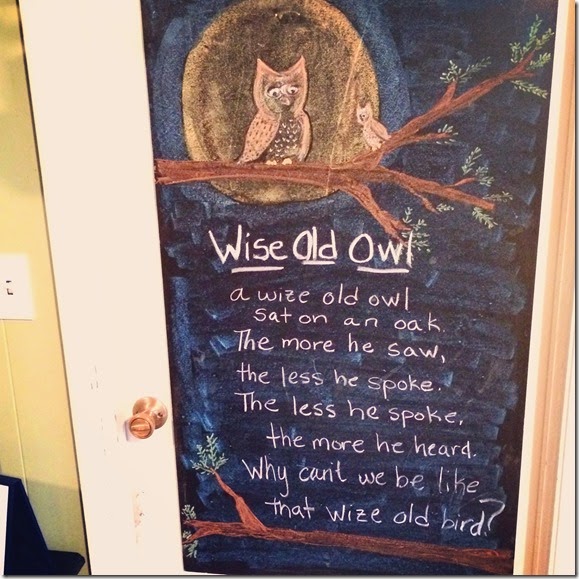 Wise Old Owl
a wize old owl
sat on an oak.
The more he saw,
the less he spoke.
The less he spoke,
the more he heard.
Why can't we be like
that wize old bird?